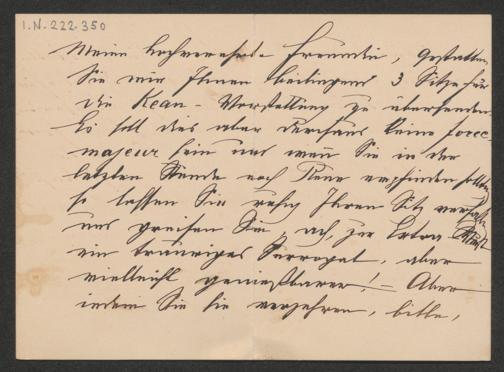 I.N. 222.350
Meine hochverehrte Freundin, gestatten
Sie mir Ihnen beiliegend 3 Sitze für
die Kean-Vorstellung zu übersenden.
Es soll dies aber durchaus keine force
majeur sein und wenn Sie in der
letzten Stunde noch Reue empfinden sollten,
so lassen Sie ruhig Ihren Sitz
und greifen Sie, ach, zur Extra
ein trauriges Surrogat, aber
vielleicht genießbarer! – Aber
indem Sie sie verzehren, bitte,